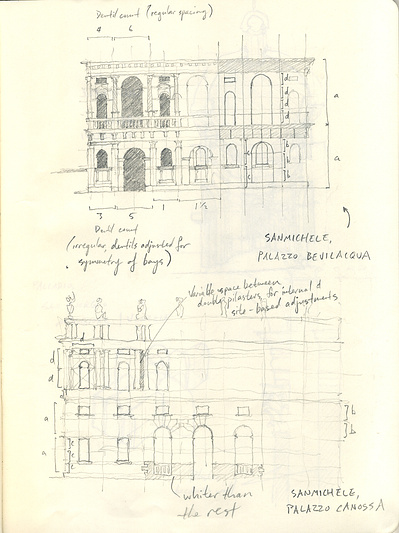 Dentil count (regular spacing)
4 6
d
d
d
d
a
a
b
b
c
c
3 5 1 1½
Dentil count
(irregular, dentils adjusted for
symmetry of bays)
SANMICHELE,
PALAZZO BEVILACQUA
Variable space between
double pilasters for internal d
site-based adjustments
d
d
d
d
a
a
b
b
c
c
c
whiter than
the rest
SANMICHELE,
PALAZZO CANOSSA